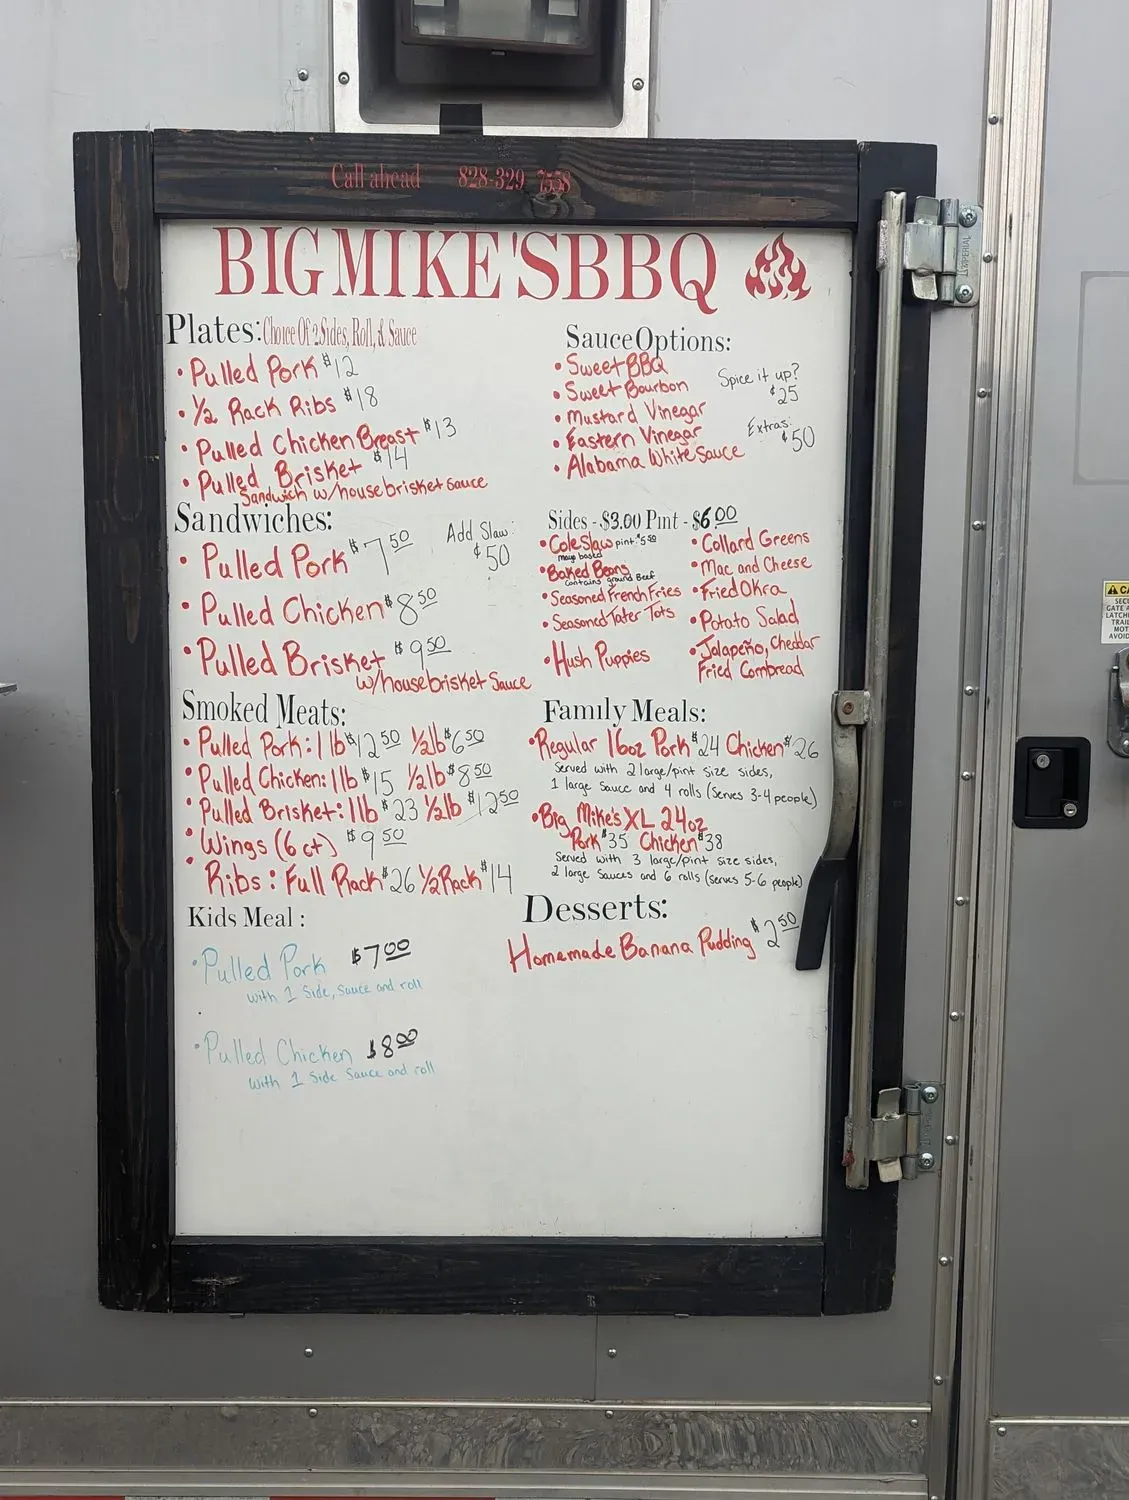 Call ahead 828-329 7558
BIG MIKE'S BBQ
Plates: Choice Of 2 Sides, Roll, & Sauce
• Pulled Pork $12
• 1/2 Rack Ribs $18
• Pulled Chicken Breast $13
• Pulled Brisket $14
Sandwich w/house brisket sauce
Sandwiches:
• Pulled Pork $7.50
Add Slaw: $50
• Pulled Chicken $8.50
• Pulled Brisket $9.50
w/house brisket Sauce
Smoked Meats:
• Pulled Pork: 1 lb $12.50 1/2lb $6.50
• Pulled Chicken: 1lb $15 1/2lb $8.50
• Pulled Brisket: 1lb $23 1/2lb $12.50
• Wings (6 ct) $9.50
• Ribs: Full Rack $26 1/2 Rack $14
Kids Meal:
• Pulled Pork $7.00
with 1 Side, Sauce and roll
• Pulled Chicken $8.00
with 1 Side Sauce and roll
Sauce Options:
• Sweet BBQ
• Sweet Bourbon
• Mustard Vinegar
• Eastern Vinegar
• Alabama White Sauce
Spice it up?
$25
Extras:
$50
Sides - $3.00 Pint - $6.00
• Cole Slaw pint $5.50
mayo based
• Baked Beans
contains ground Beef
• Seasoned French Fries
• Seasoned Tater Tots
• Hush Puppies
• Collard Greens
• Mac and Cheese
• Fried Okra
• Potato Salad
• Jalapeño, Cheddar
Fried Cornbread
Family Meals:
• Regular 16oz Pork $24 Chicken $26
Served with 2 large/pint size sides,
1 large sauce and 4 rolls (serves 3-4 people)
• Big Mike's XL 24oz
Pork $35 Chicken $38
Served with 3 large/pint size sides,
2 large sauces and 6 rolls (serves 5-6 people)
Desserts:
Homemade Banana Pudding $2.50